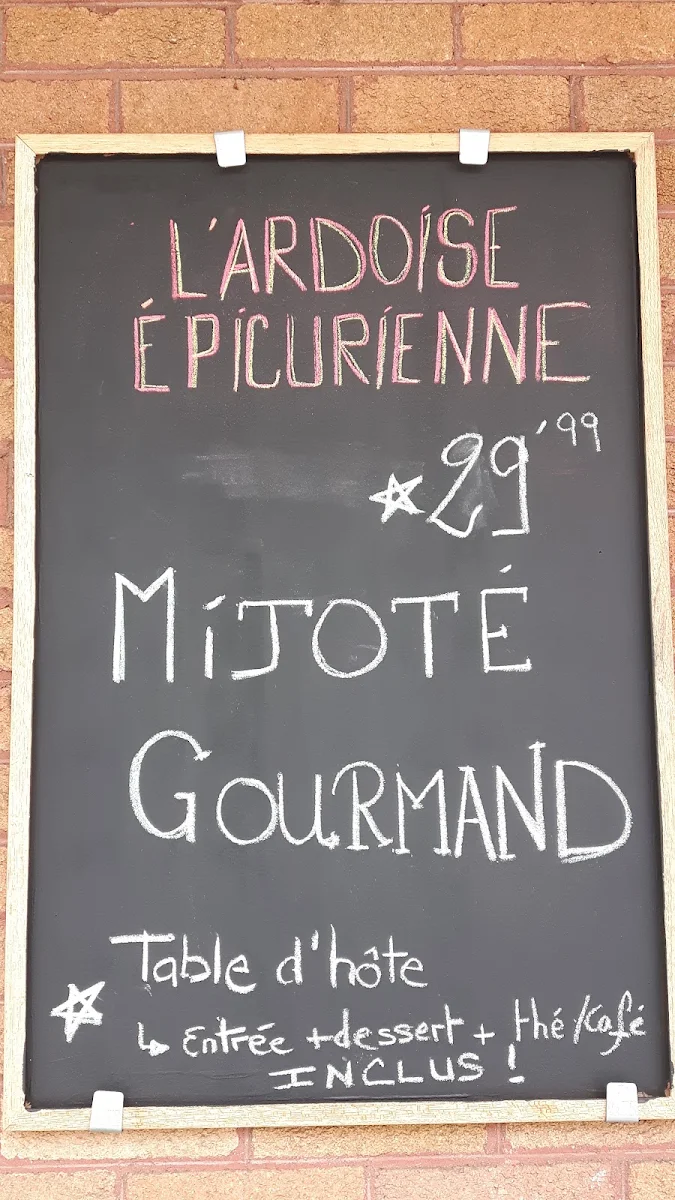 L'ARDOISE
ÉPICURIENNE
☆29'99
MIJOTÉ
GOURMAND
Table d'hôte
☆ ↳ Entrée + dessert + thé/Café
INCLUS !